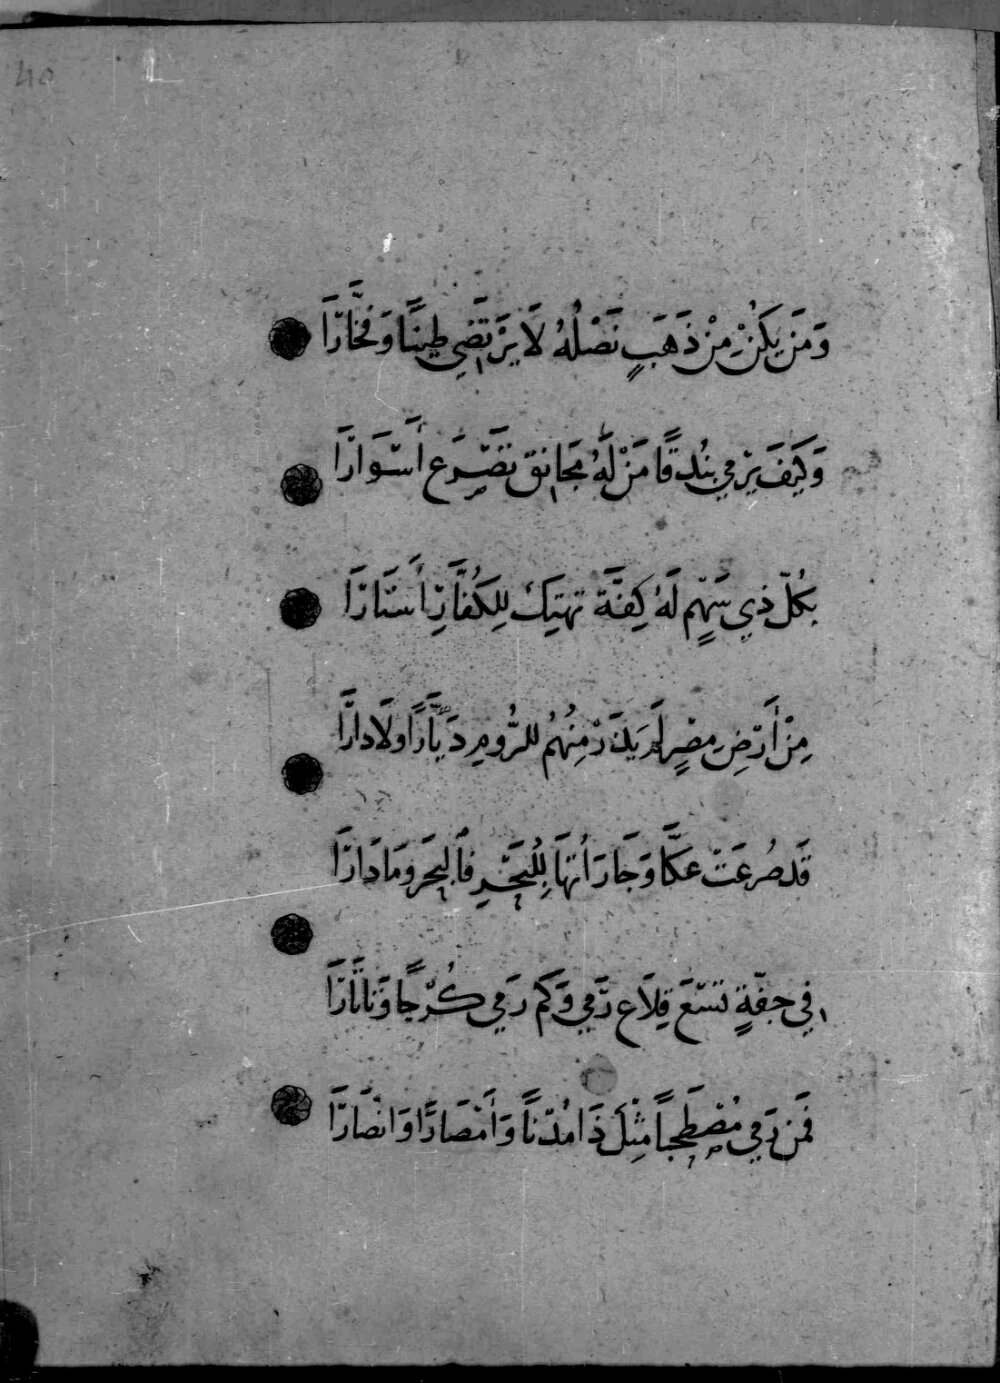 40
وَمَن يَكُنْ مِنْ ذَهَبٍ نَصْلُهُ لَا يَرْتَضِي طِينًا وَفَخَّارَا
وَكَيفَ يَرْمِي بُندقًا مَنْ لَهُ مَجَانق تَصْرَع أَسْوَارَا
بكُلّ ذي سَهْمٍ لَهُ كِفَّة تهتِك لِلكُفَّارِ أَستَارَا
مِنْ أَرْضِ مِصْرٍ لَم يَذَرْ مِنْهُمُ للرُّومِ دَيَّارًا ولَا دارَا
قَد صُرعَتْ عكَّا وَجَارَاتهَا لِلْبَحْرِ فَالبَحر وَمَا دَارَا
في جفّةٍ تسْعَ قِلَاع رَمي وَكَم رَمي كُرْجًا وَتَاتَارَا
فَمَن رَمي مُصْطَحِبًا مِثْلَ ذَا مُدْنًا وَأَمْصَارًا وَانْصَارَا